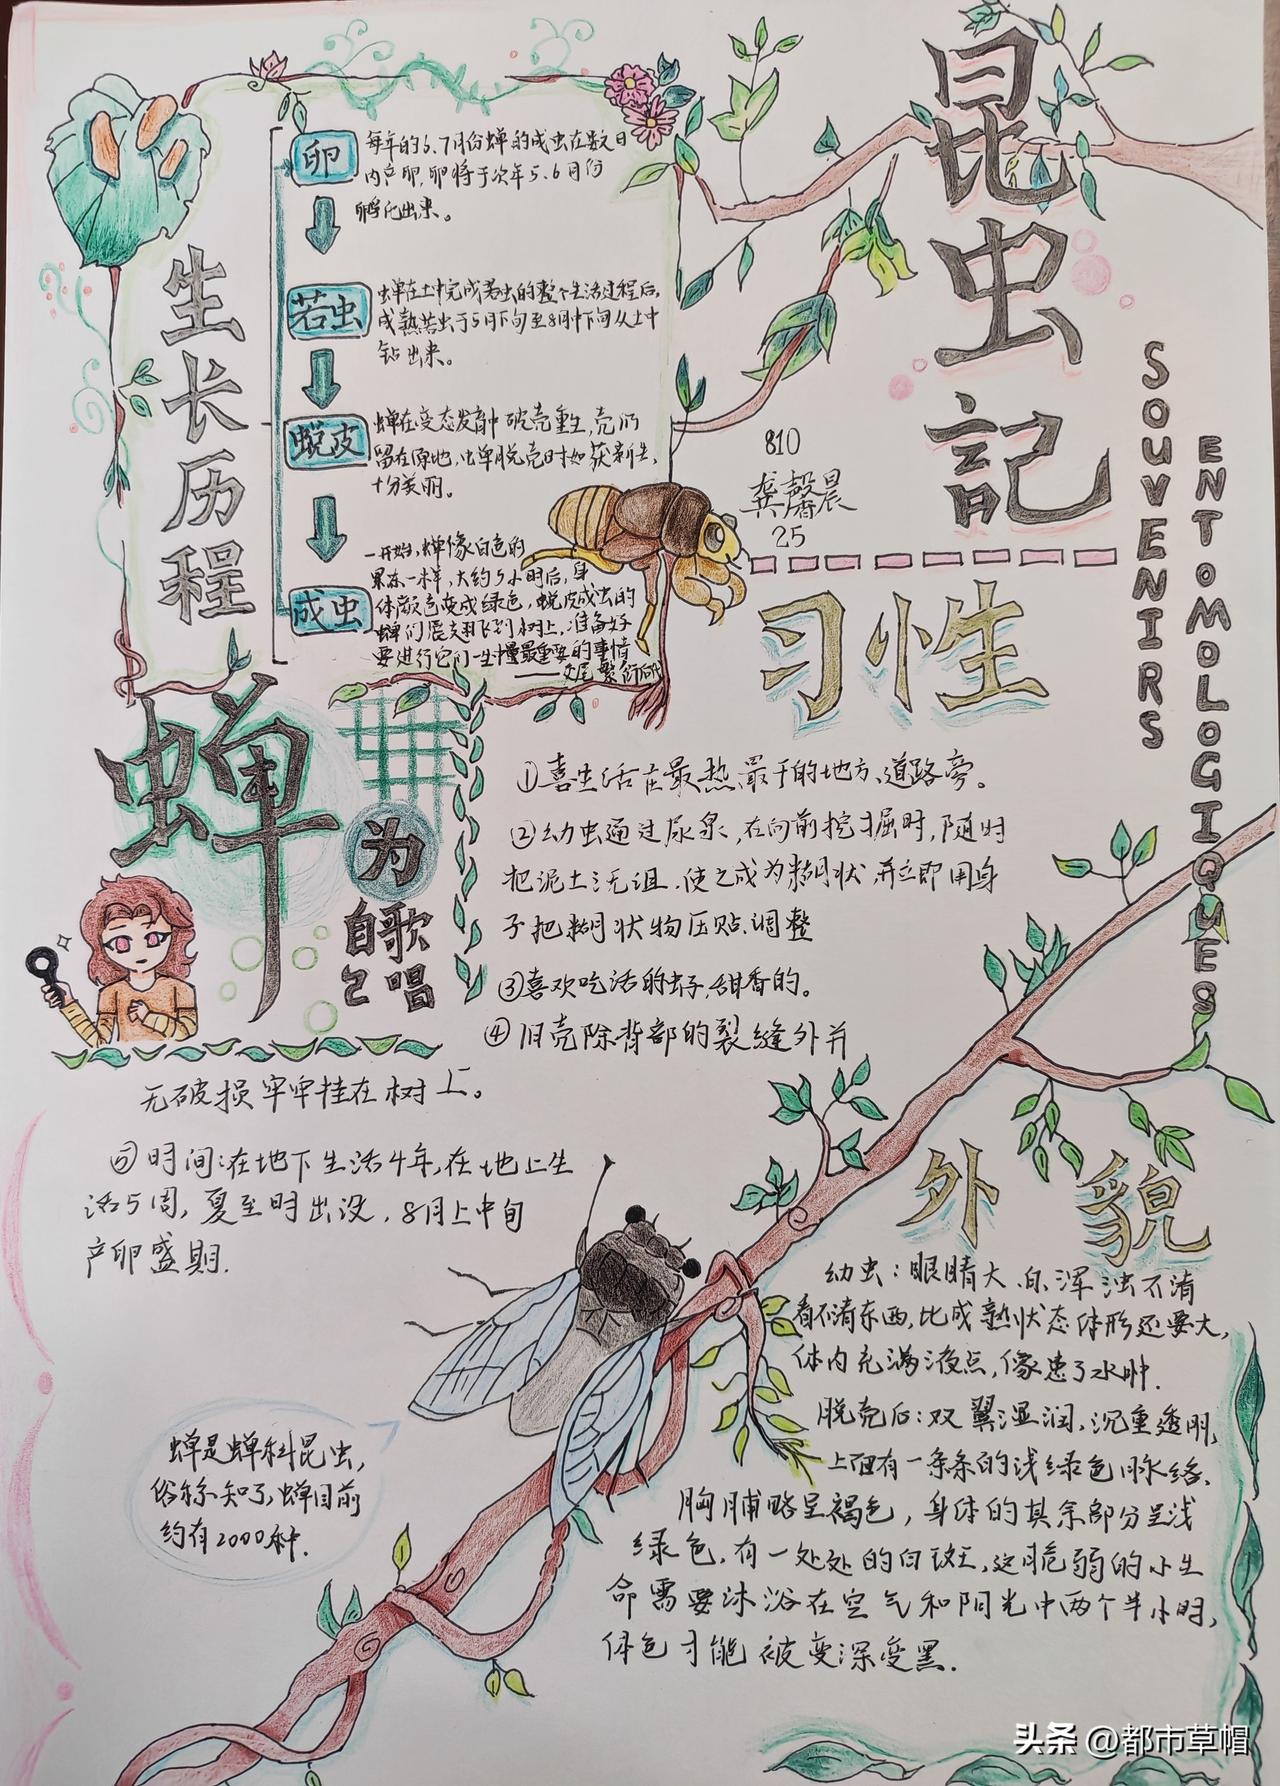 昆虫記
SOUVENIRS
ENTOMOLOGIQUES
810
龚馨晨
25
生长历程
卵
每年的6.7月份蝉的成虫在数日
内产卵,卵将于次年5.6月份
孵化出来。
若虫
虫单在土中完成若虫的整个生活过程后,
成熟若虫于5月下旬至8月中下旬从土中
钻出来。
蜕皮
蝉在变态发育中破壳重生,壳们
留在原地,虫单脱壳时如获新生,
十分美丽。
成虫
一开始,蝉像白色的
果冻一样,大约5小时后,身
体颜色变成绿色,蜕皮成虫的
蝉们展翅飞到树上,准备好
要进行它们一生中最重要的事情
——交尾 繁衍后代
蝉
为
自己
歌唱
习性
①喜生活在最热、最干的地方、道路旁。
②幼虫通过尿泉,在向前挖掘时,随时
把泥土浇诅,使之成为糊状,并立即用身
子把糊状物压贴、调整
③喜欢吃活的虫子,甜香的。
④旧壳除背部的裂缝外并
无破损牢牢挂在树上。
⑤时间:在地下生活4年,在地上生
活5周,夏至时出没,8月上中旬
产卵盛期.
外貌
幼虫:眼睛大、白、浑浊不清
看不清东西,比成熟状态体形还要大,
体内充满液点,像患了水肿.
脱壳后:双翼湿润,沉重透明,
上面有一条条的浅绿色脉络、
胸脯略呈褐色,身体的其余部分呈浅
绿色,有一处处的白斑,这脆弱的小生
命需要沐浴在空气和阳光中两个半小时,
体色才能被变深变黑.
蝉是蝉科昆虫,
俗称知了,蝉目前
约有2000种.
头条 @都市草帽